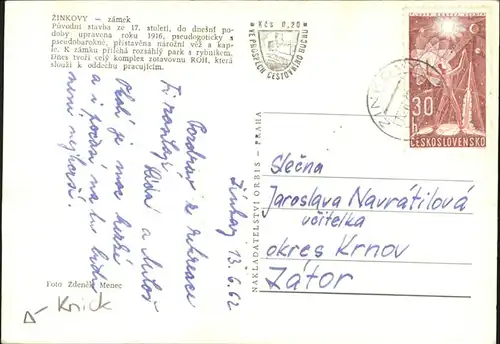 ŽINKOVY — zámek
Původní stavba ze 17. století, do dnešní po-
doby upravena roku 1916, pseudogoticky s
pseudobarokně, přistavěna nárožní věž a kap-
le. K zámku přiléhá rozsáhlý park s rybníkem.
Dnes tvoří celý komplex zotavovnu ROH, která
slouží k oddechu pracujícím.
Kčs 0,20
VE PROSPĚCH CESTOVNÍHO RUCHU
30
h
ČESKOSLOVENSKO
Žinkovy 13.6.62
Pozdrav z rekreace
Vám
a Miloš
je moc hezké
a i počasí na
není nejhorší.
NAKLADATELSTVÍ ORBIS — PRAHA
Slečna
Jaroslava Navrátilová
učitelka
okres Krnov
Zátor
Foto Zdeněk Menec
Knick